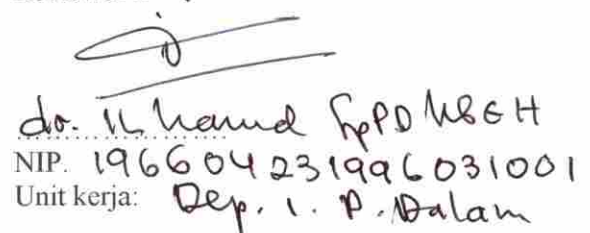 dr. Ilhamd SpPD KGEH
NIP. 196604231996031001
Unit kerja: Dep. I. P. Dalam